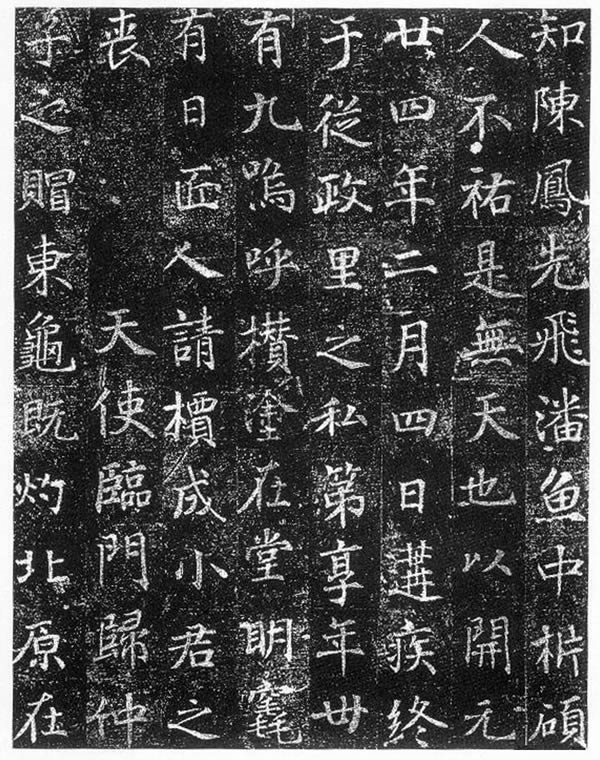 知陳鳳先飛潘魚中枿碩
人不祐是無天也以開元
廿四年二月四日遘疾終
于從政里之私第享年卅
有九嗚呼攢塗在堂明
有日匠人請檟成小君之
喪天使臨門歸仲
子之賵東龜既灼北原在